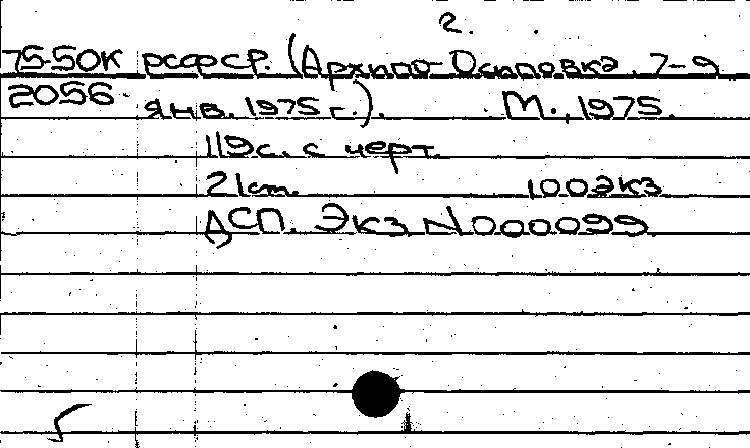 2.
75-50К РСФСР. (Архипо-Осиповка, 7-9
2056. янв. 1975 г.). М., 1975.
119с. с черт.
21см. 100экз
ДСП. Экз N000099
5